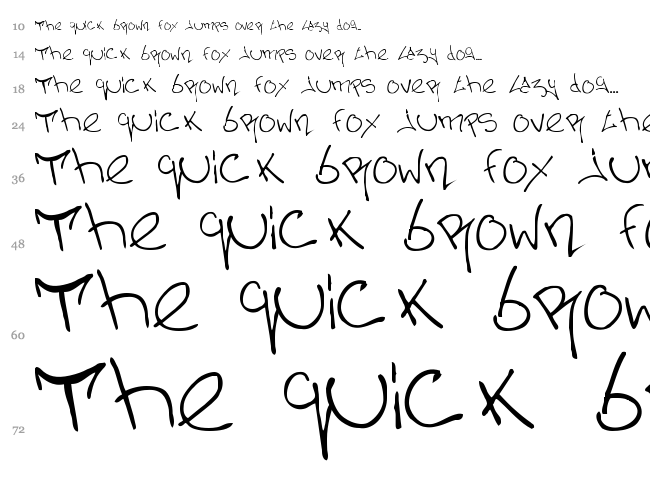 10 The quick brown fox jumps over the lazy dog...
14 The quick brown fox jumps over the lazy dog...
18 The quick brown fox jumps over the lazy dog...
24 The quick brown fox jumps over the
36 The quick brown fox jum
48 The quick brown fo
60 The quick brown
72 The quick b